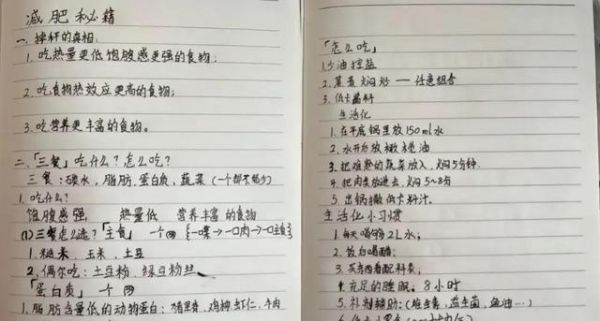 减肥秘籍
一、掉秤的真相
1. 吃热量更低饱腹感更强的食物；
2. 吃食物热效应更高的食物；
3. 吃营养更丰富的食物。
二、「三餐」吃什么？怎么吃？
三餐：碳水，脂肪，蛋白质，蔬菜（一个都不能少）
1. 吃什么？
饱腹感强， 热量低 营养丰富的食物
(1) 三餐怎么选？「主食」 一个 {一口菜→一口肉→一口主食}
1. 糙米、玉米、土豆
2. 偶尔吃：土豆粉、绿豆粉丝
「蛋白质」 一个
1. 脂肪含量低的动物蛋白：猪里脊，鸡胸虾仁，牛肉
「怎么吃」
1. 少油控盐
2. 蒸煮焖炒 —— 任意组合
3. 低卡蘸料
生活化
1. 在平底锅里放150ml水
2. 水开后放橄榄油
3. 把难熟的蔬菜放入，焖5分钟
4. 把肉类放进去，焖5~8分
5. 出锅撒低卡料汁。
生活化小习惯
1. 每天喝够2L水；
2. 饭后喝醋；
3. 买东西看配料表；
4. 充足的睡眠。8小时
5. 补剂辅助：（维生素，益生菌，鱼油…）